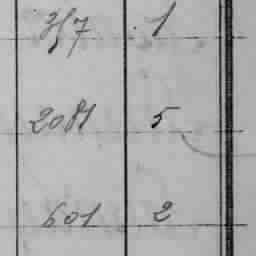 357 1
2081 5
601 2